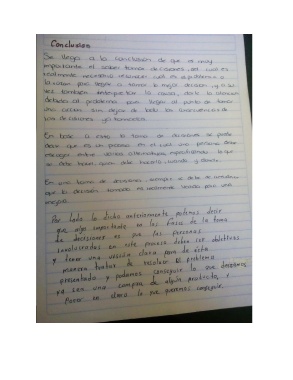 Conclusion
Se llega a la conclusión de que es muy
importante el saber tomar decisiones, así cual es
realmente necesario reconocer cual es el problema o
la causa para llegar a tomar la mejor decisión, y a su
vez también enfocarse en la causa, darle la atención
debida al problema para llegar al punto de tomar
una decisión sin dejar de lado las consecuencias de
las decisiones ya tomadas.
En base a esto la toma de decisiones se puede
decir que es un proceso en el cual una persona debe
escoger entre varias alternativas, especificando lo que
se debe hacer, quien debe hacerlo, cuando y donde.
En una toma de decisiones siempre se debe
que la decisión tomada es realmente la
mejor.
Por todo lo dicho anteriormente podemos decir
que algo importante en las fases de la toma
de decisiones es que las personas
involucradas en este proceso deben ser objetivas
y tener una visión clara para de esta
manera tratar de resolver el problema
presentado y podamos conseguir lo que deseamos,
ya sea una compra de algún producto, y
tener en claro lo que queremos conseguir.